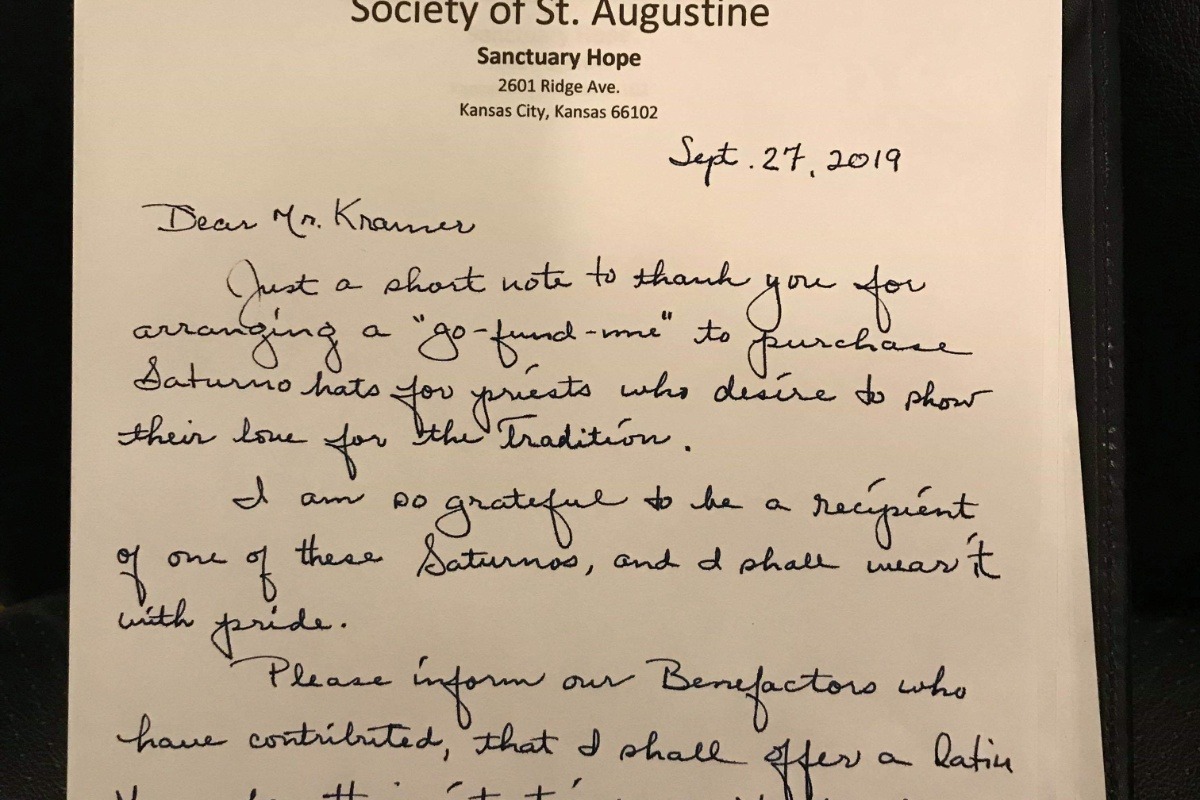 Society of St. Augustine
Sanctuary Hope
2601 Ridge Ave.
Kansas City, Kansas 66102
Sept. 27, 2019
Dear Mr. Kramer
Just a short note to thank you for
arranging a "go-fund-me" to purchase
Saturno hats for priests who desire to show
their love for the Tradition.
I am so grateful to be a recipient
of one of these Saturnos, and I shall wear it
with pride.
Please inform our Benefactors who
have contributed, that I shall offer a latin